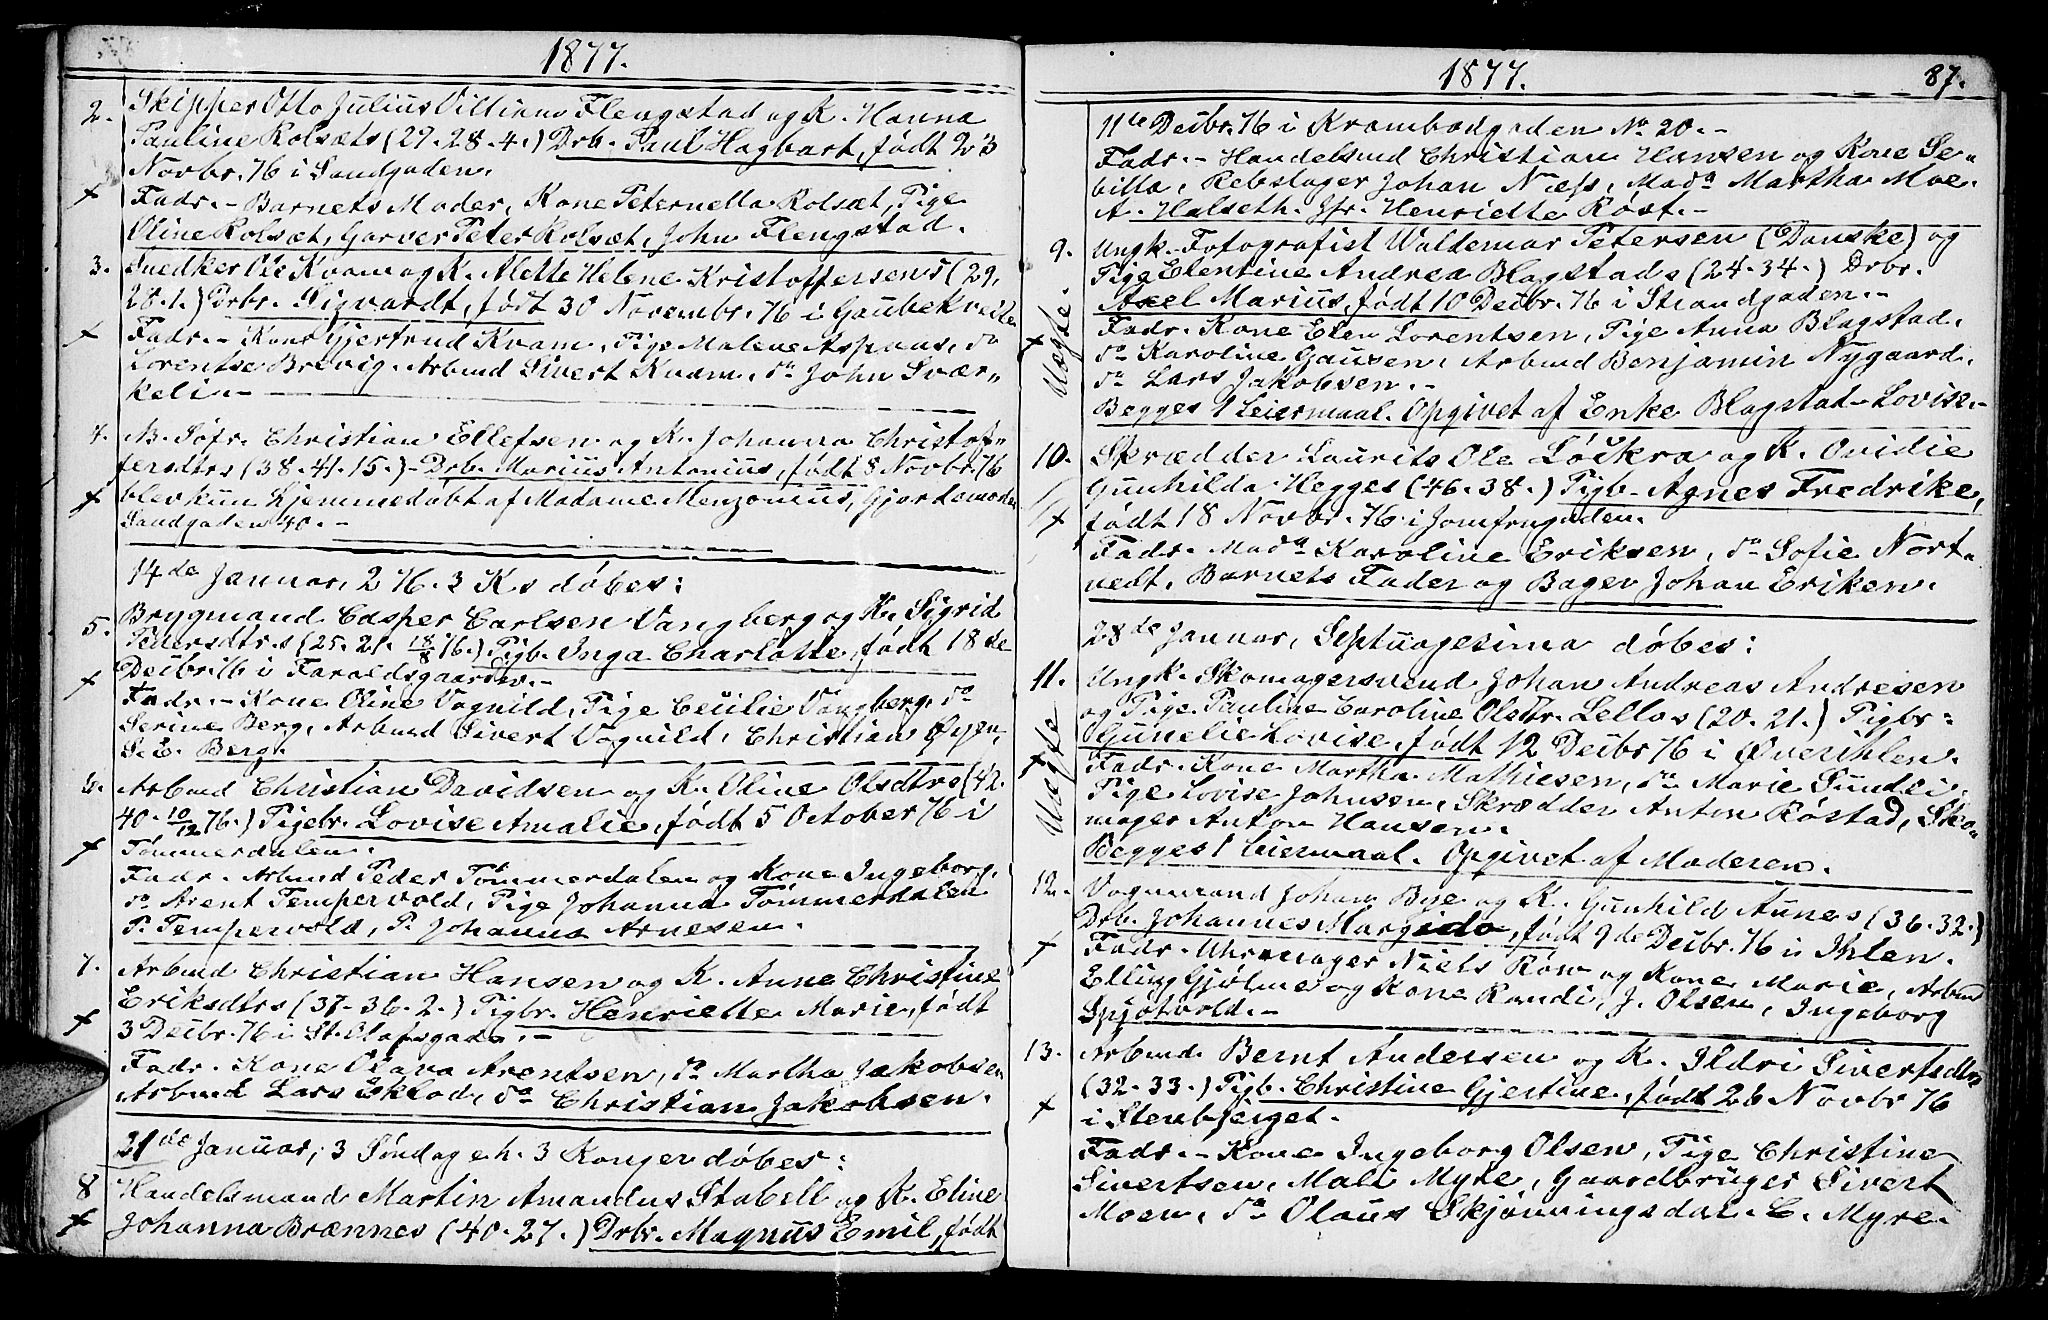 1877.
2. Skipper Otto Julius Villiam Flengstad og K. Hanna
Pauline Rolsæts (29.28.4.) Drb. Paul Hagbart, født 23
Novbr. 76 i Sandgaden.
+ Fadr.- Barnets Moder, Kone Peternella Rolsæt, Pige
Oline Rolsæt, Garver Peter Rolsæt, John Flengstad.
3. Snedker Ole Kvam og K. Alette Helene Kristoffersens (29.
28.1.) Drbr. Sigvardt, født 30 Novembr. 76 i Gaubekveiten
+ Fadr.- Kone Gjertrud Kvam, Pige Malene Aspaas, do
Lorentse Brevig. Arbmd Sivert Kvam, do John Svær„
keli.-
4. B. Søfr. Christian Ellefsen og K. Johanna Christof„
fersdtrs (38.41.15.)- Drb. Marius Antonius, født 8 Novbr. 76
+ blev kun hjemmedøbt af Madame Menzonius, Gjordemoder
Sandgaden 40.-
14de Januar, 2 S. e. 3 K. døbes:
5. Brygmand Casper Carlsen Vangberg og K. Sigrid
Pedersdtrs (25.21. 18/8 76.) Pigb. Inga Charlotte, født 18de
+ Decbr. 76 i Faroldsgaarden.-
Fadr.- Kone Oline Vognild, Pige Cecilie Vangberg, do
Serine Berg, Arbmd Sivert Vognild, Christian Øyen,
S. E. Berg.
6. Arbmd Christian Davidsen og K. Oline Olsdtrs (42.
40. 10/12 76.) Pigebr. Lovise Amalie, født 5 October 76 i
+ Tømmerdalen.
Fadr. Arbmd Peder Tømmerdalen og Kone Ingeborg,
do Arent Tempervold, Pige Johanna Tømmerdalen
P. Tempervold, P. Johanna Arnesen.
7. Arbmd Christian Hansen og K. Anne Christine
Eriksdtrs (37.36.2.) Pigbr. Henriette Marie, født
+ 3 Decbr. 76 i St. Olafsgade.-
Fadr. Kone Olava Arentsen, do Martha Jakobsen
Arbmd Lars Eklod, do Christian Jakobsen.
21de Januar, 3 Søndag e. h. 3 Konger døbes:
8 Handelsmand Martin Amandus Stabell og K. Eline
+ Johanna Brænnes (40.27.) Drbr. Magnus Emil, født
1877. 87.
11te Decbr. 76 i Krambodgaden No 20.-
Fadr.- Handelsmd Christian Hansen og Kone Se„
billa, Rebslager Johan Næss, Mada Martha Moe.
A. Halseth. Jfr. Henriette Røst.-
9. Ungk. Fotografist Waldemar Petersen (Danske) og
Pige Elentine Andrea Blagstads (24.34.) Drbr.
Uægte. Axel Marius, født 10 Decbr. 76 i Strandgaden.-
+ Fadr. Kone Elen Lorentsen, Pige Anna Blagstad.
do Karoline Gausen, Arbmd Benjamin Nygaard,
do Lars Jakobsen.-
Begges 1 Leiermaal. Opgivet af Enke Blagstad Lovise.-
10. Skrædder Laurits Ole Løckra og K. Ovidie
Gunhilda Hegges (46.38.) Pigb. Agnes Fredrike,
+ født 18 Novbr. 76 i Jomfrugaden.
Fadr. Mada Karoline Eriksen, do Sofie Nort„
vedt, Barnets Fader og Bager Johan Eriken.
28de Januar, Septuagesima døbes:
11. Ungk. Skomagersvend Johan Andreas Andresen
og Pige Pauline Caroline Olsdtr. Lellos (20.21.) Pigbr.
Uægte + Gunelie Lovise, født 12 Decbr 76 i Øvreihlen.
Fadr. Kone Martha Mathiesen, do Marie Sundli,
Pige Lovise Johnsen, Skrædder Anton Røstad, Sko„
mager Anton Hansen.
Begges 1 Leiermaal. Opgivet af Moderen.
12. Vognmand Johan Bye og K. Gunhild Aunes (36.32.)
Drb. Johannes Margido, født 9de Decbr. 76 i Ihlen.
+ Fadr. Uhrmager Niels Røw og Kone Marie, Arbmd
Elling Gjølme og Kone Randi, J. Olsen, Ingeborg
Spjøtvold.-
13. Arbmd. Bernt Andersen og K. Ildri Sivertsdtrs
(32.33.) Pigb. Christine Gjertine, født 26 Novbr 76
+ i Stenbjerget.
Fadr.- Kone Ingeborg Olsen, Pige Christine
Sivertsen, Mali Myre, Gaardbruger Sivert
Moen, do Olaus Skjønningsdal. E. Myre.